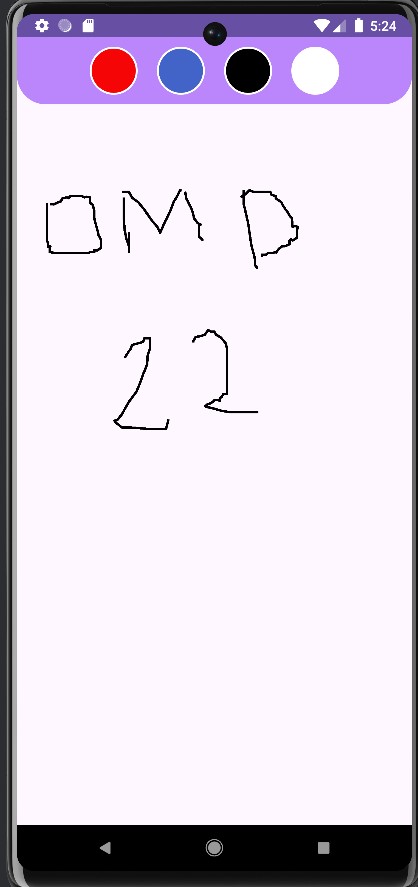 5:24
OMD
22